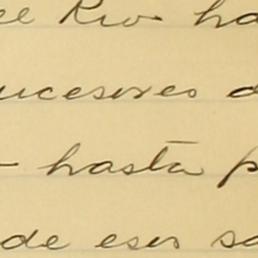 el Rio ha
ucesores d
hasta p
de esos sa